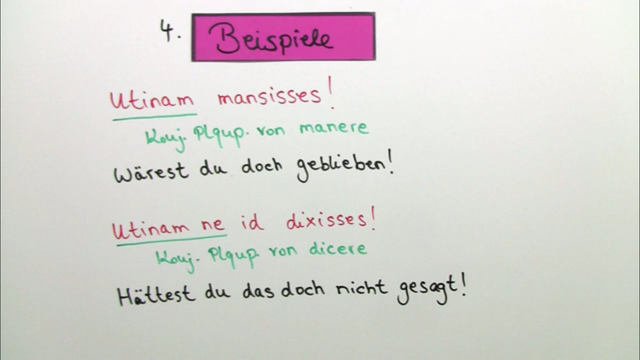 4. Beispiele
Utinam mansisses!
Konj. Plqup. von manere
Wärest du doch geblieben!
Utinam ne id dixisses!
Konj. Plqup. von dicere
Hättest du das doch nicht gesagt!